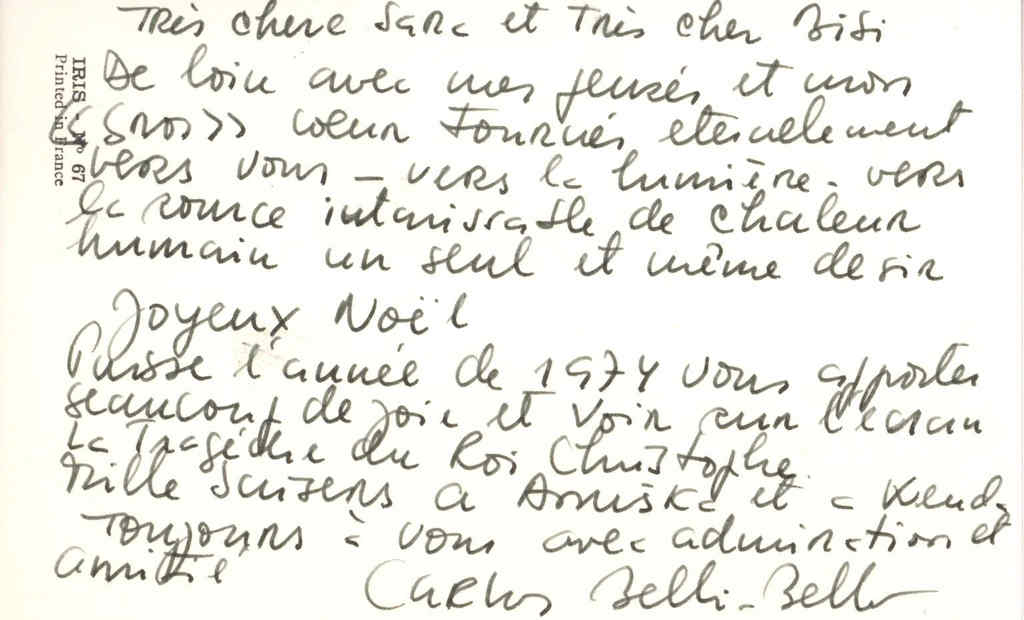 Très chere Sara et Très cher Bibi
De loin avec mes pensés et mon
<<Gros>> cœur Tournés eternelement
vers vous – vers la lumière – vers
la source intarissable de chaleur
humain un seul et même desir
Joyeux Noël
Puisse l'année de 1974 vous apporter
beaucoup de joie et voir sur l'ecran
La Tragédie du Roi Christophe
Mille baisers a et a
Toujours à vous avec admiration et
amitié
Carlos Belli-Bello
IRIS - Nº 67
Printed in France